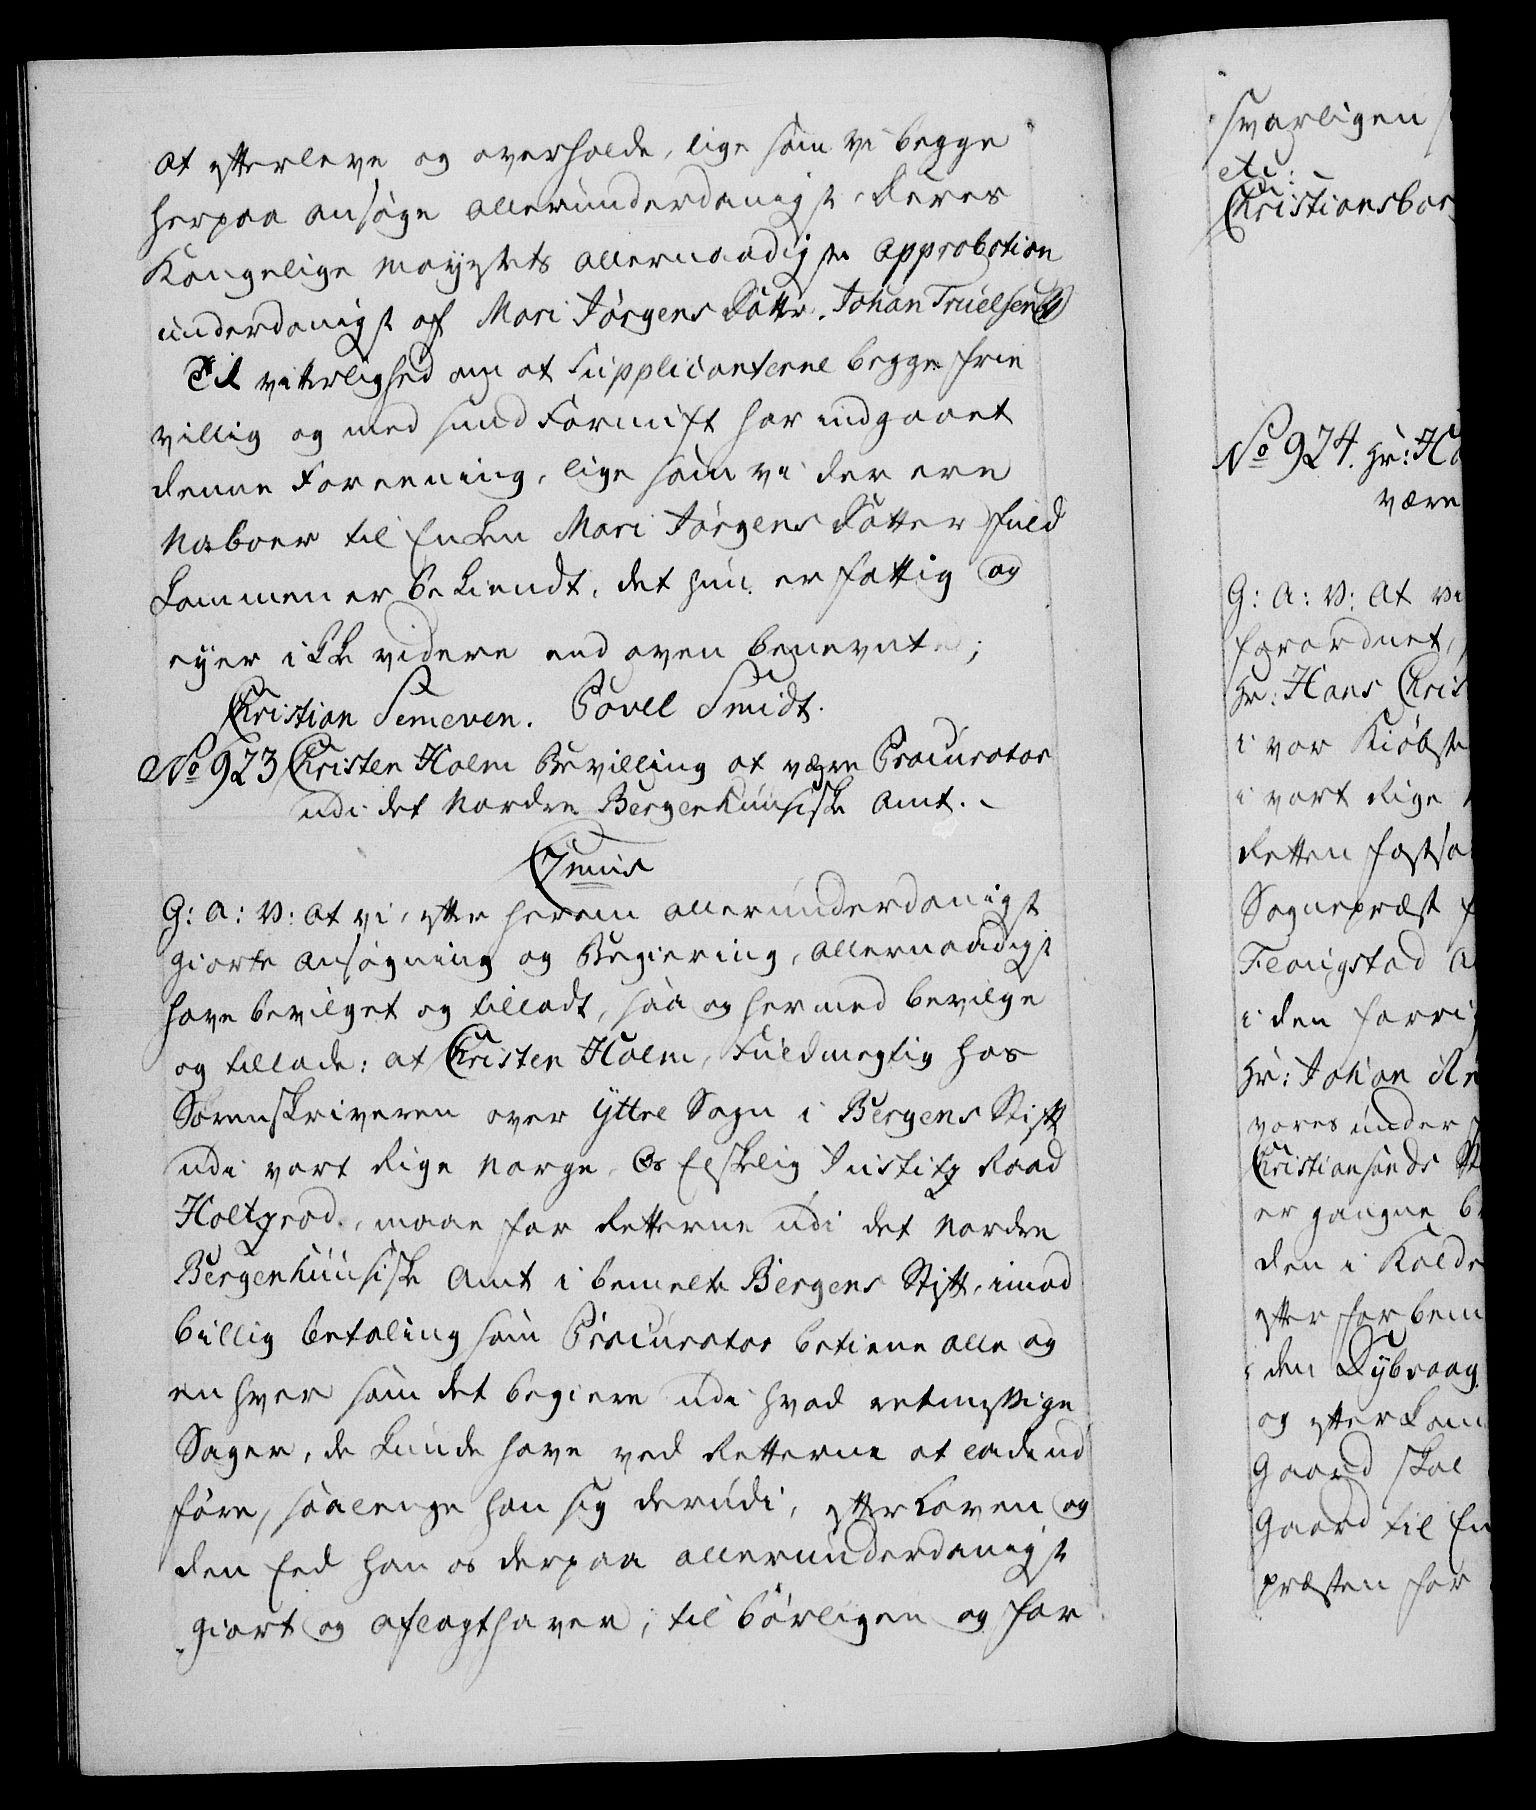 at efterleve og overholde, lige som vi begge
herpaa ansøge allerunderdanigst Deres
Kongelige Mayestets allernaadigste Approbation
underdanigst af Mari Jørgens Datter. Johan Truelsen
Til vitterlighed om at Supplicanterne begge frie
villig og med sund Fornuft har indgaaet
denne Foreening, lige som vi der ere
Naboer til Enken Mari Jørgens Datter fuld
kommen er bekiendt, det hun er fattig og
eyer ikke videre end oven benevnte;
Christian Semeven. Povel Smidt.
No 923 Christen Holm Bevilling at være Procurator
udi det Nordre Bergenhuusiske Amt.
G: A: V: At vi, efter herom allerunderdanigst
giorte Ansøgning og Begiering, allernaadigst
have bevilget og tilladt, saa og hermed bevilge
og tillade: at Christen Holm, Fuldmegtig hos
Sorenskriveren over Yttre Sogn i Bergens Stift
udi vort Rige Norge, Os Elskelig Justitz Raad
Holtzrod, maae for Retterne udi det Nordre
Bergenhuusiske Amt i bemelte Bergens Stift, imod
billig betaling som Procurator betiene alle og
en hver som det begiere udi hvad retmessige
Sager, de kunde have ved Retterne at lade ud
føre, saalenge han sig derudi, efter Loven og
den Eed han os derpaa allerunderdanigst
giort og aflagt haver, tilbørligen og for
svarligen
etc:
Christiansbor
No 924. Hr: Ha
være
G: A: V: At vi
forordnet,
Hr: Hans Chris
i vor Kiøbste
i vort Rige
Retten fastsa
Sognepræst f
Flougstad
i den forrig
Hr: Johan
vores under
Christiansands St
er gangne be
den i Kolde
efter forbem
den Dybvaag
og efterkom
Gaard skal
Gaard til En
præsten for